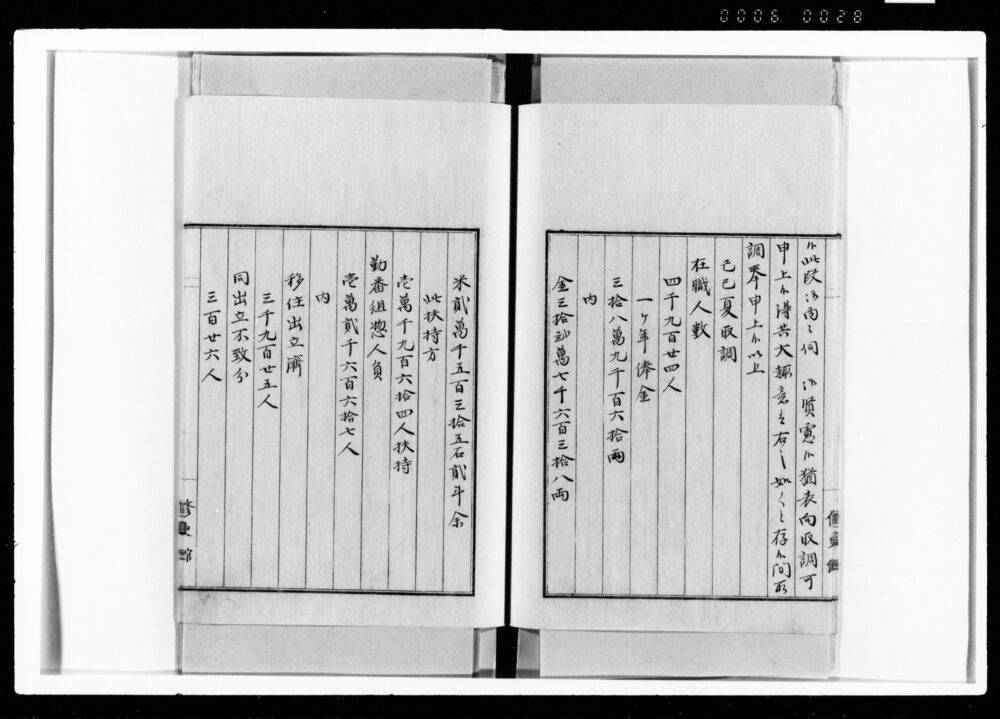 0006 0028
候此段御内々伺 御賢慮候猶表向取調可
申上候得共大趣意は右之如くと存候間取
調奉申上候以上
己巳夏取調
在職人数
四千九百廿四人
一ヶ年俸金
三拾八萬九千百六拾両
内
金三拾弐萬七千六百三拾八両
修史館
米貳萬千五百三拾五石貳斗余
此扶持方
壱萬千九百六拾四人扶持
勤番組惣人負
壱萬貳千六百六拾七人
内
移住出立濟
三千九百廿五人
同出立不致分
三百廿六人
修史館